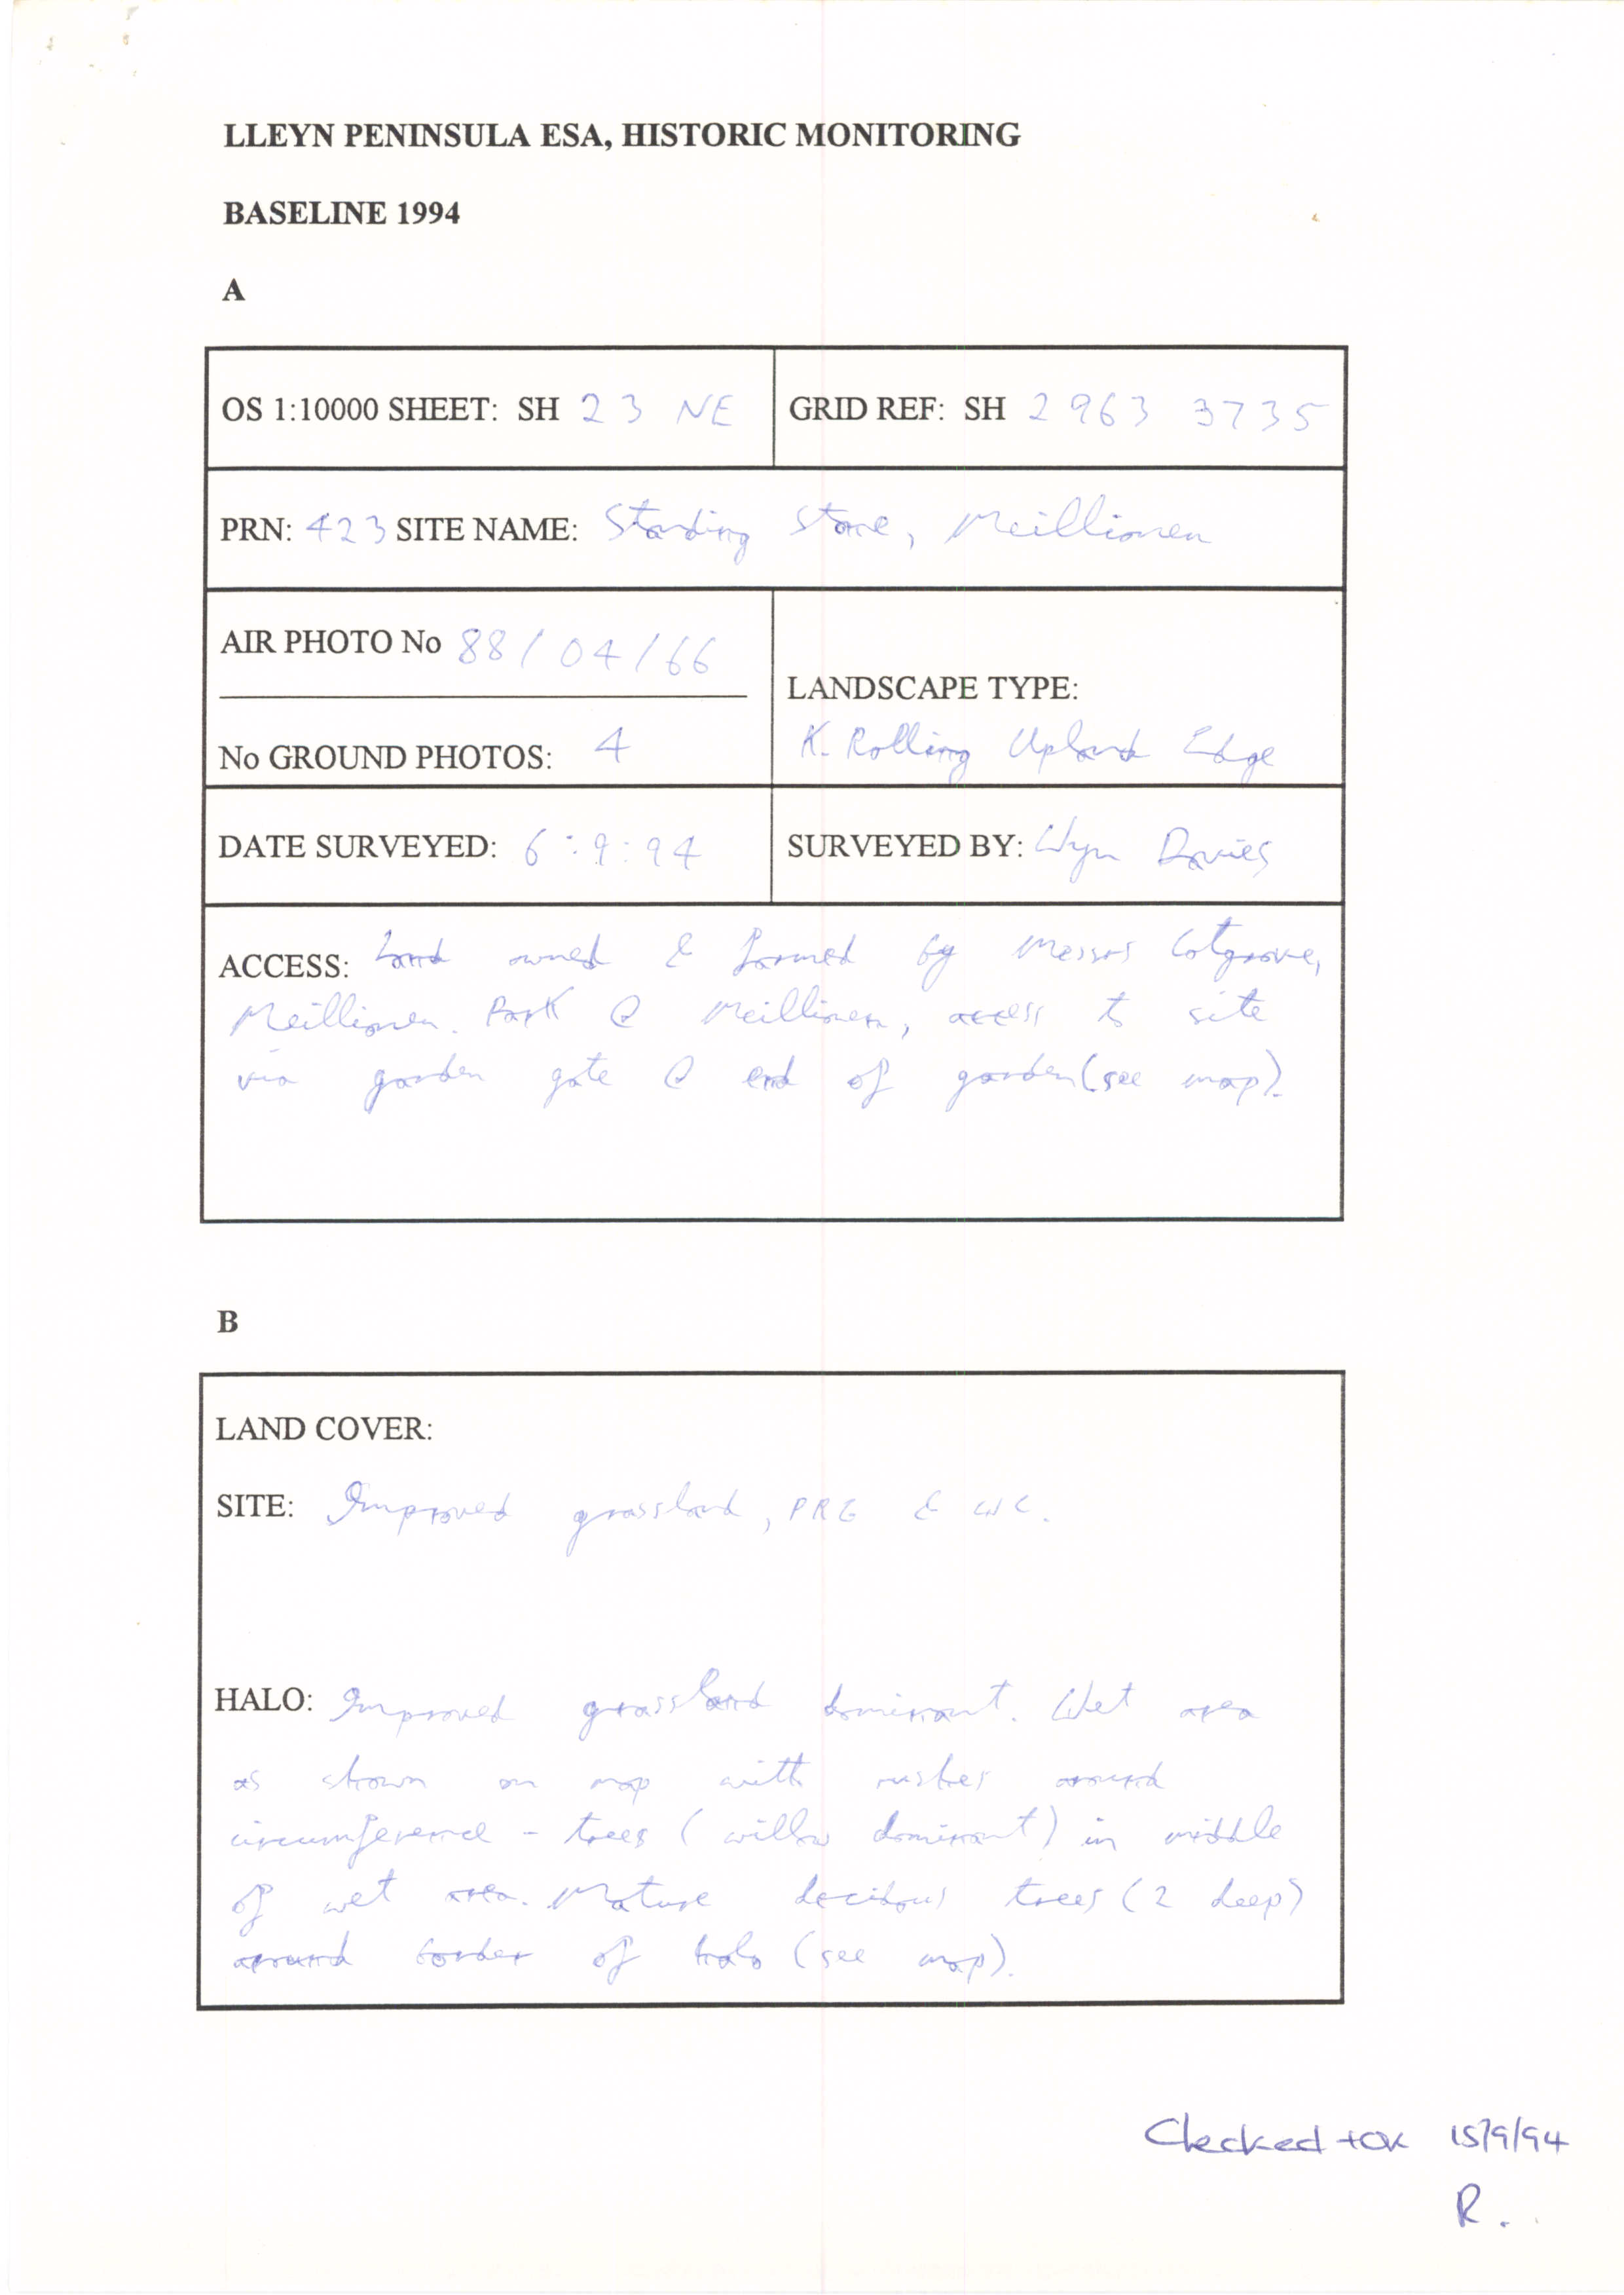 LLEYN PENINSULA ESA, HISTORIC MONITORING
BASELINE 1994
A
OS 1:10000 SHEET: SH 23 NE
GRID REF: SH 2963 3735
PRN: 423 SITE NAME: Standing Stone, Meillionen
AIR PHOTO No 88/04/66
No GROUND PHOTOS: 4
LANDSCAPE TYPE:
K. Rolling Upland Edge
DATE SURVEYED: 6:9:94
SURVEYED BY: Wyn Davies
ACCESS: Land owned & farmed by Messrs Cotgrove,
Meillionen. Park @ Meillionen, access to site
via garden gate @ end of garden (see map).
B
LAND COVER:
SITE: Improved grassland, PRG & WC.
HALO: Improved grassland dominant. Wet area
as shown on map with rushes around
circumference - trees (willow dominant) in middle
of wet area. Mature decidous trees (2 deep)
around border of halo (see map).
Checked + OK 15/9/94
R.